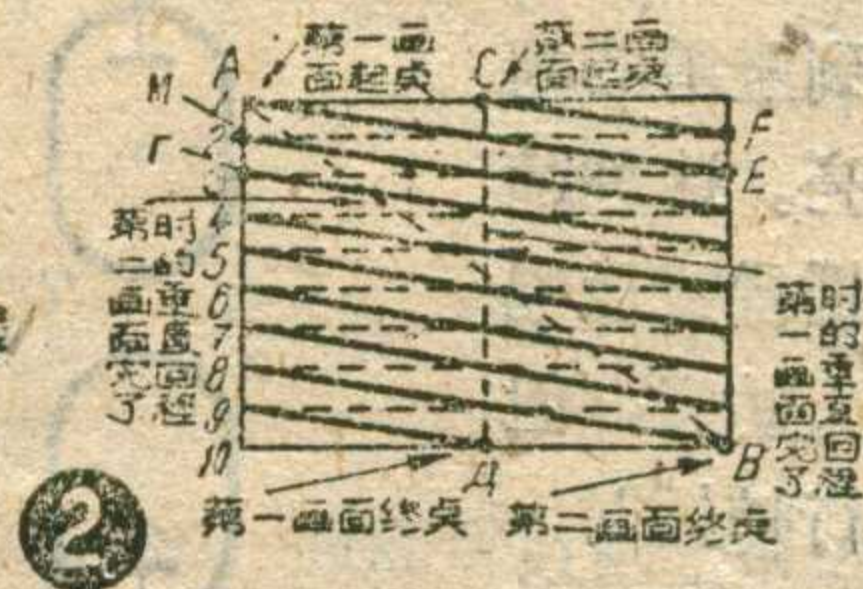 第一画
面起点
第二画
面起点
A
C
M
1
2
F
Г
3
E
4
5
6
7
8
9
10
第二画面完了
时的垂直回程
第一画面完了
时的垂直回程
Д
B
第一画面终点
第二画面终点
2